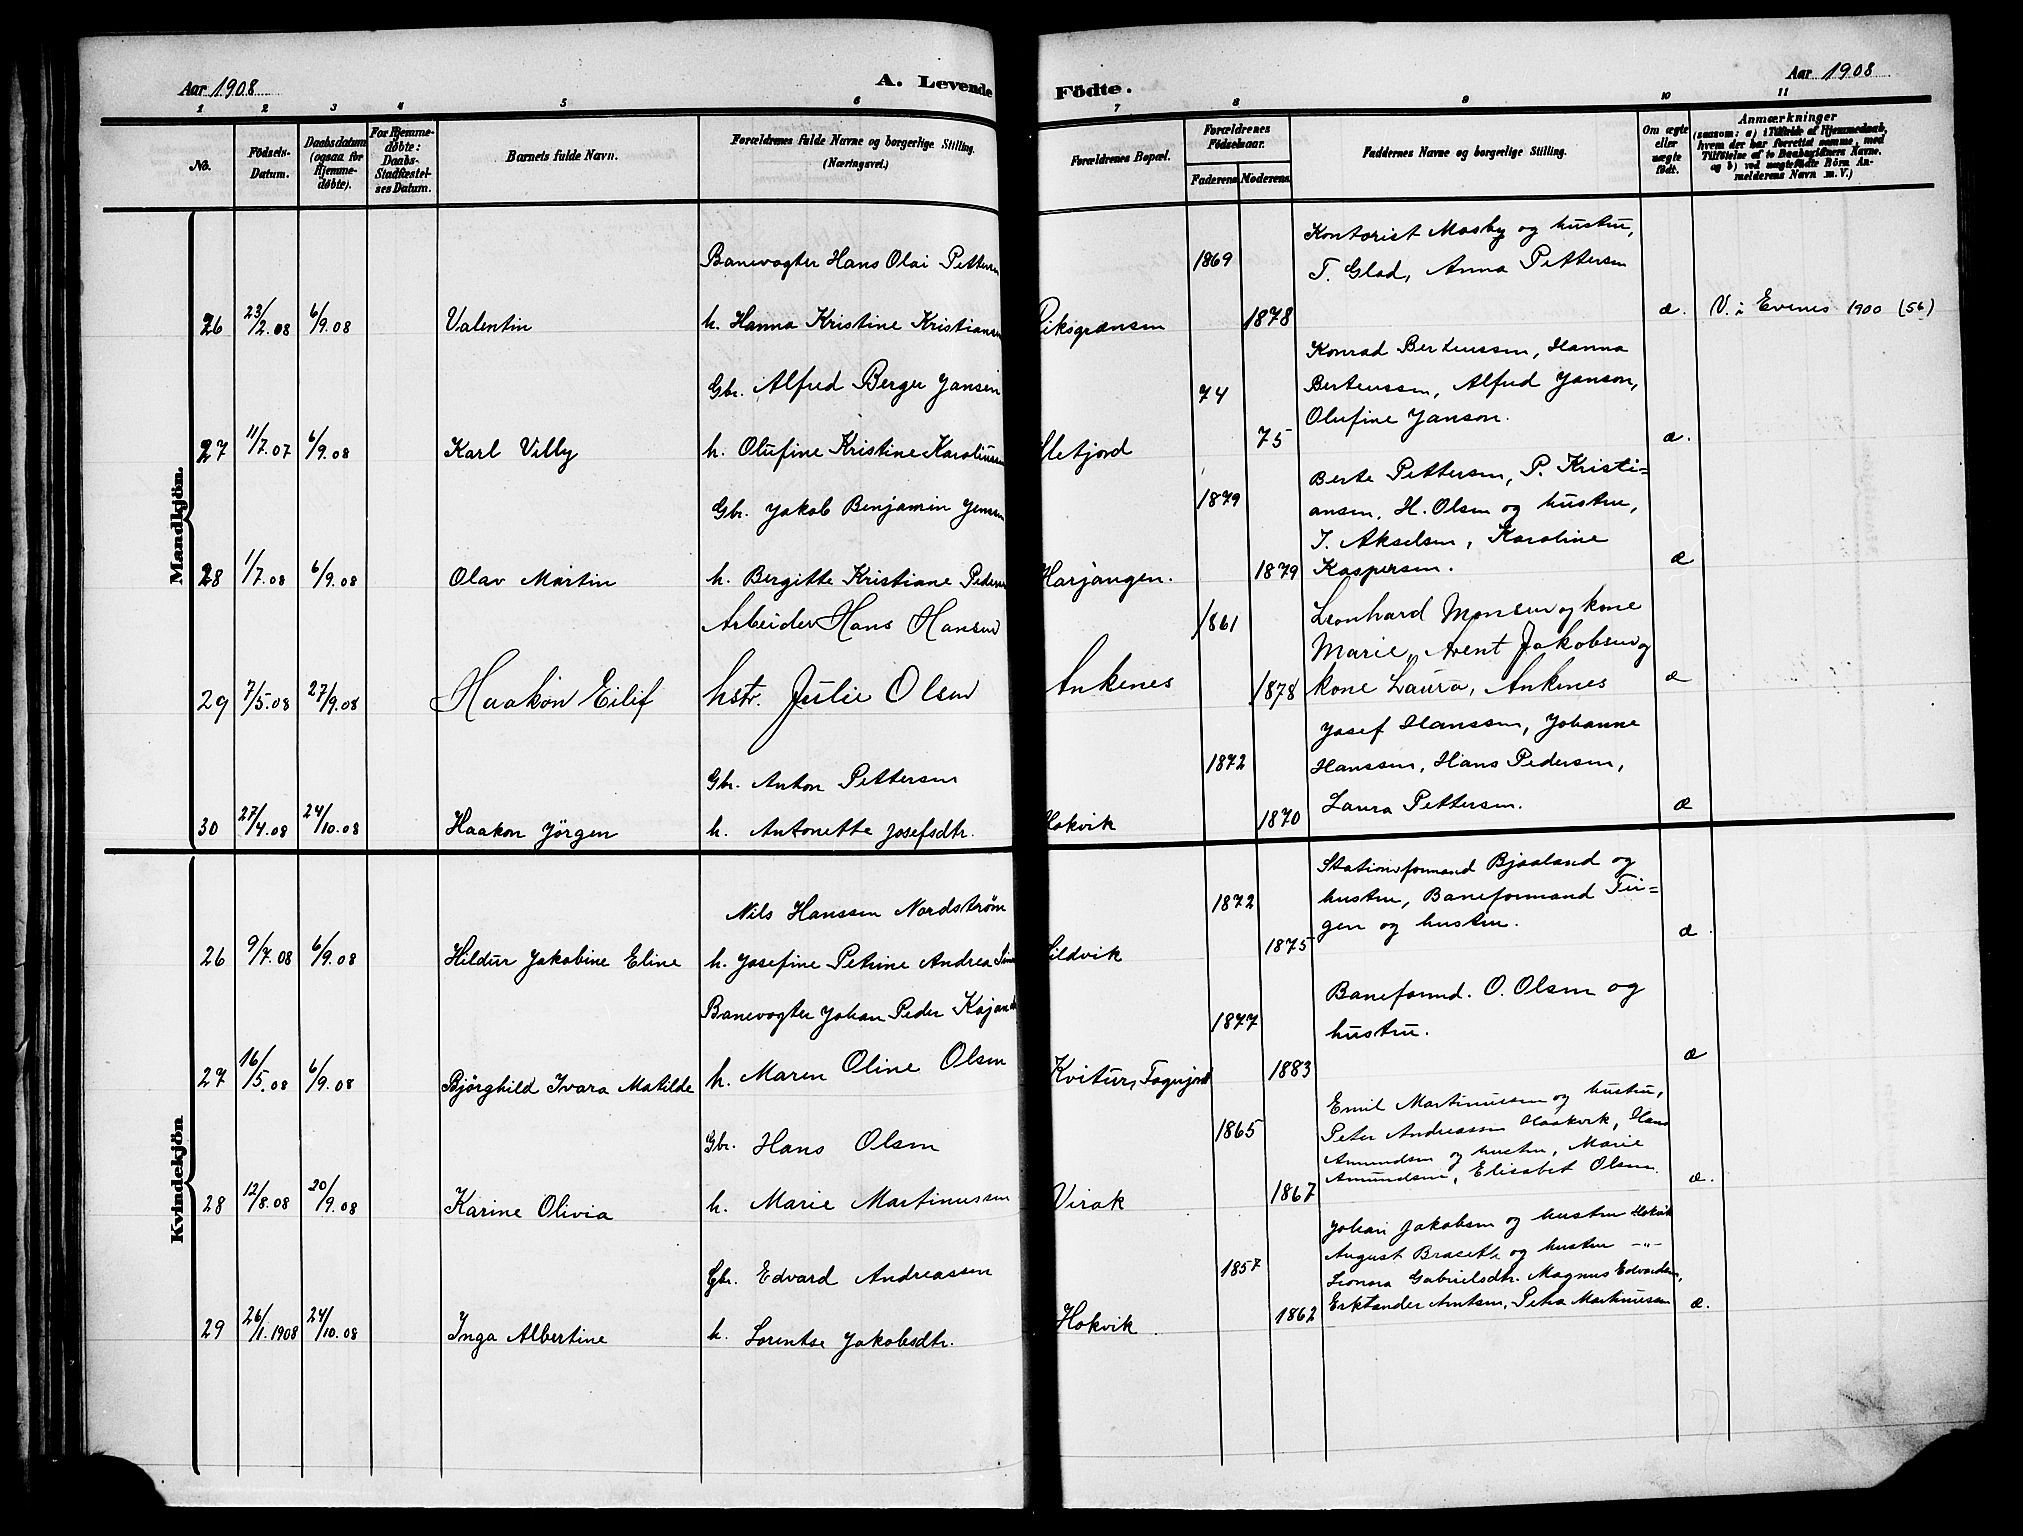 Aar 1908
A. Levende Födte.
Aar 1908
1 2 3 4 5 6 7 8 9 10 11
No.
Födsels-Datum.
Daabsdatum (ogsaa for Hjemme-døbte).
For Hjemme-døbte: Daabs-Stadfæstel-ses Datum.
Barnets fulde Navn.
Forældrenes fulde Navne og borgerlige Stilling.
(Næringsvei.)
Forældrenes Bopæl.
Forældrenes Födselsaar.
Faderens Moderens
Faddernes Navne og borgerlige Stilling.
Om ægte eller uægte født.
Anmærkninger
(saasom: a) i Tilfælde af Hjemmedaab,
hvem der har forrettet samme, med
Tilføielse af to Daabsvidners Navne.
og b) ved uægtefødte Börn An-
melderens Navn m. V.)
Mandkjön.
Banevogter Hans Olai Pettersen 1869
Kontorist Mosby og hustru,
T. Glad, Anna Pettersen
26 23/2.08 6/9.08 Valentin h. Hanna Kristine Kristiansen Riksgrænsen 1878 æ. V. i Evenes 1900 (56)
Gbr. Alfred Berger Jansen 74
Konrad Berteussen, Hanna
Berteussen, Alfred Janson,
Olufine Janson.
27 11/7.07 6/9.08 Karl Villy h. Olufine Kristine Karoliussen 75 æ.
Gbr. Jakob Benjamin Jensen 1879
Berte Pettersen, P. Kristi=
ansen, H. Olsen og hustru,
J. Akselsen, Karoline
Kaspersen.
28 1/7.08 6/9.08 Olav Martin h. Bergitte Kristiane Pedersen Harjangen. 1879 æ
Arbeider Hans Hansen 1861
Leonhard Monsen og kone
Marie, Arent Jakobsen og
29 7/5.08 27/9.08 Haakon Eilif hstr. Julie Olsen Ankenes 1878 kone Laura, Ankenes æ
Gbr. Anton Pettersen 1872
Josef Hanssen, Johanne
Hanssen, Hans Pedersen,
Laura Pettersen.
30 27/4.08 24/10.08 Haakon Jörgen h. Antonette Josefsdtr. Hokvik 1870 æ
Kvindekjön
Nils Hanssen Nordström 1872
Stationsformand Bjaaland og
hustru, Baneformand Tei=
gen og hustru.
26 9/7.08 6/9.08 Hildur Jakobine Eline h. Josefine Petrine Andrea Sildvik 1875 æ
Banevogter Johan Peder 1877
Baneformd. O. Olsen og
hustru.
27 16/5.08 6/9.08 Björghild Ivara Matilde h. Maren Oline Olsen 1883 æ
Gbr. Hans Olsen 1865
Emil Martinussen og hustru,
Peter Andreassen Haakvik, Hans
Amundsen og hustru, Marie
Amundsen, Elisabet Olsen.
28 12/8.08 20/9.08 Karine Olivia h. Marie Martinussen Virak 1867 æ.
Gbr. Edvard Andreassen 1857
Johan Jakobsen og hustru Hokvik
August Braseth og hustru -"-
Leonora Gabrielsdtr. Magnus Edvardsen,
Arntsen, Petra Martinussen
29 26/1.1908 24/10.08 Inga Albertine h. Lorentse Jakobsdtr. Hokvik 1862 æ.